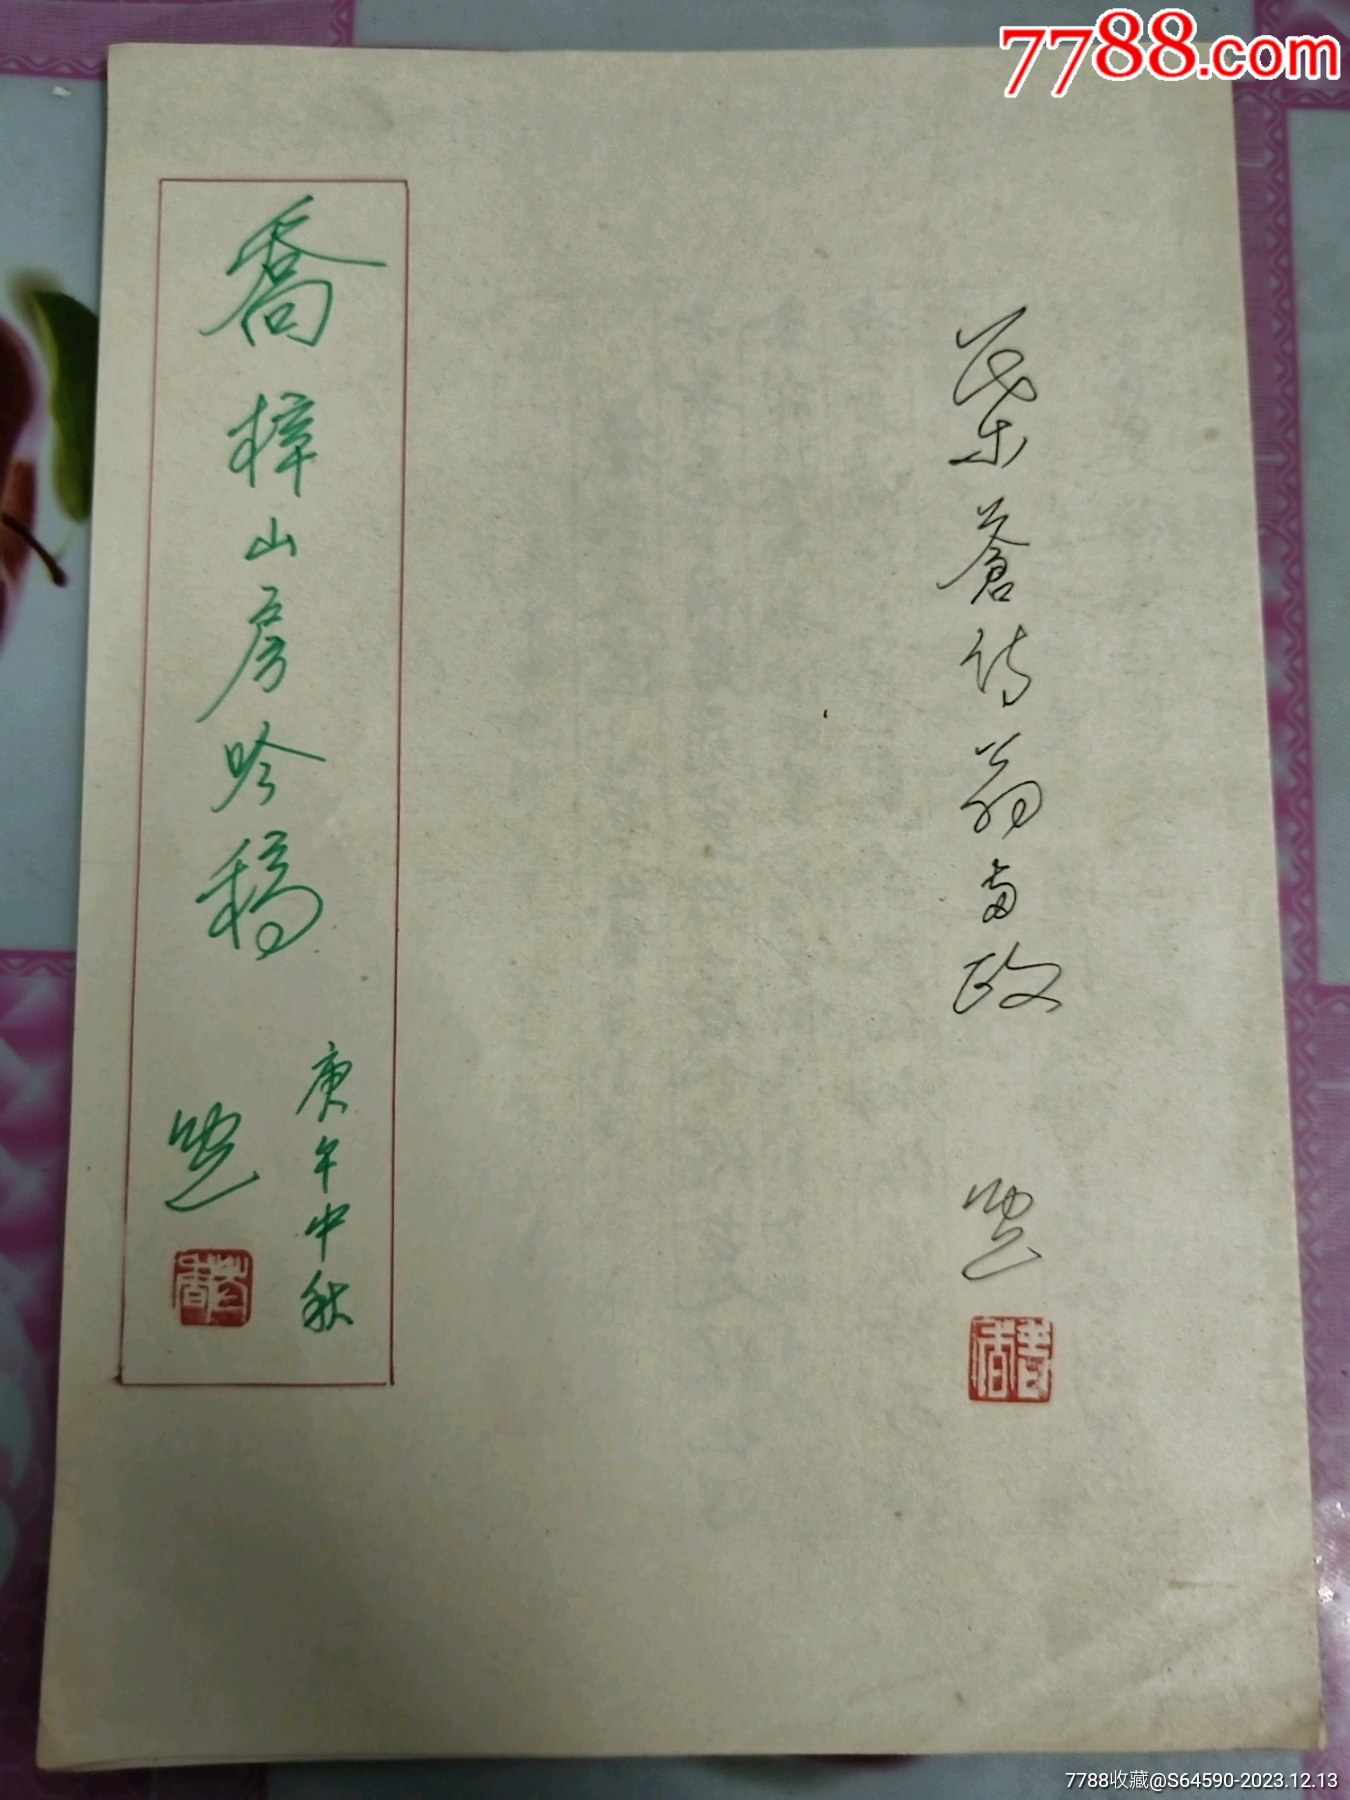 7788.com
葉蒼詩翁政
喬梓山房吟稿
庚午中秋
7788收藏@S64590-2023.12.13